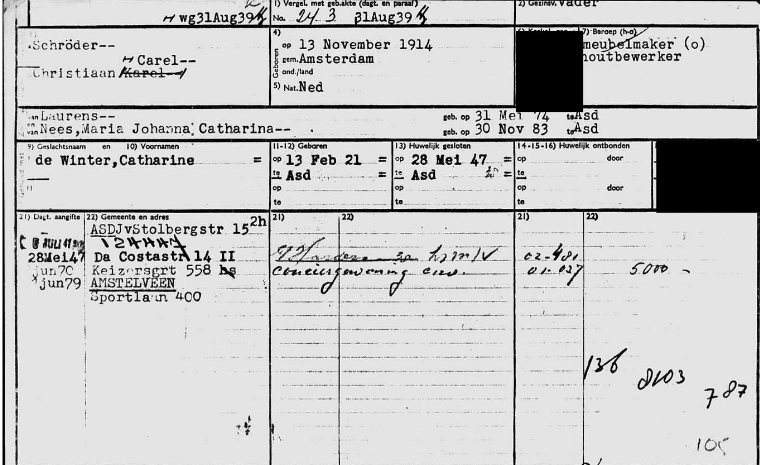 1) Vergel. met geb.akte (dagt. en paraaf)
2) Gezinsv. vader
wg31Aug39
No. 24.3 31Aug39
Schröder--
Carel--
Christiaan Karel--
4)
op 13 November 1914
gem. Amsterdam
ond./land
5) Nat. Ned
7) Beroep (h-o)
meubelmaker (o)
houtbewerker
van Laurens-- geb. op 31 Mei 74 te Asd
en van Nees, Maria Johanna Catharina-- geb. op 30 Nov 83 te Asd
9) Geslachtsnaam en 10) Voornamen
11-12) Geboren
13) Huwelijk gesloten
14-15-16) Huwelijk ontbonden
de Winter, Catharine =
op 13 Feb 21 =
op 28 Mei 47 =
op door
te Asd =
te Asd =
te
op
op
op door
te
te
te
21) Dagt. aangifte 22) Gemeente en adres
21) 22)
21) 22)
ASDJvStolbergstr 15 2h
28Mei47 Da Costastr 14 II
02-481
jun70 Keizersgrt 558 hs
conciergewoning
01-027 5000 -
jun79 AMSTELVEEN
Sportlaan 400
136
8103
787
105